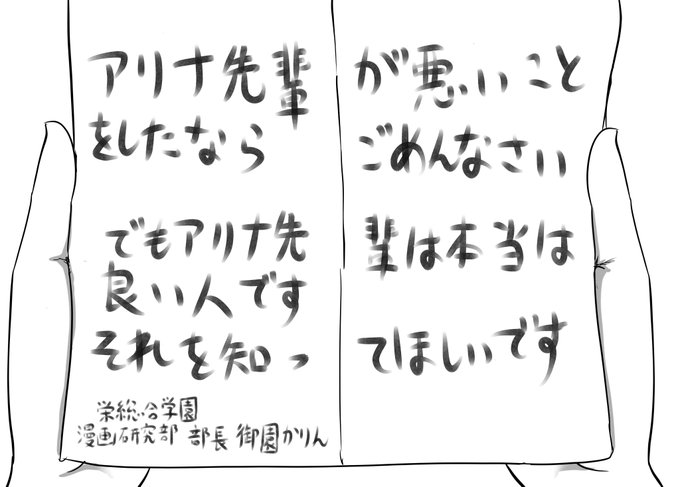 アリナ先輩が悪いこと
をしたならごめんなさい
でもアリナ先輩は本当は
良い人です
それを知ってほしいです
栄総合学園
漫画研究部 部長 御園かりん